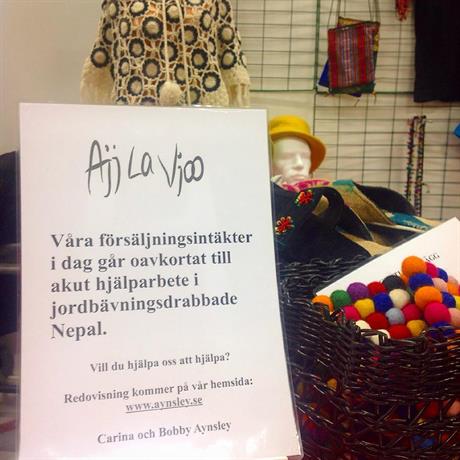 Ajj La Vjoo
Våra försäljningsintäkter
i dag går oavkortat till
akut hjälparbete i
jordbävningsdrabbade
Nepal.
Vill du hjälpa oss att hjälpa?
Redovisning kommer på vår hemsida:
www.aynsley.se
Carina och Bobby Aynsley